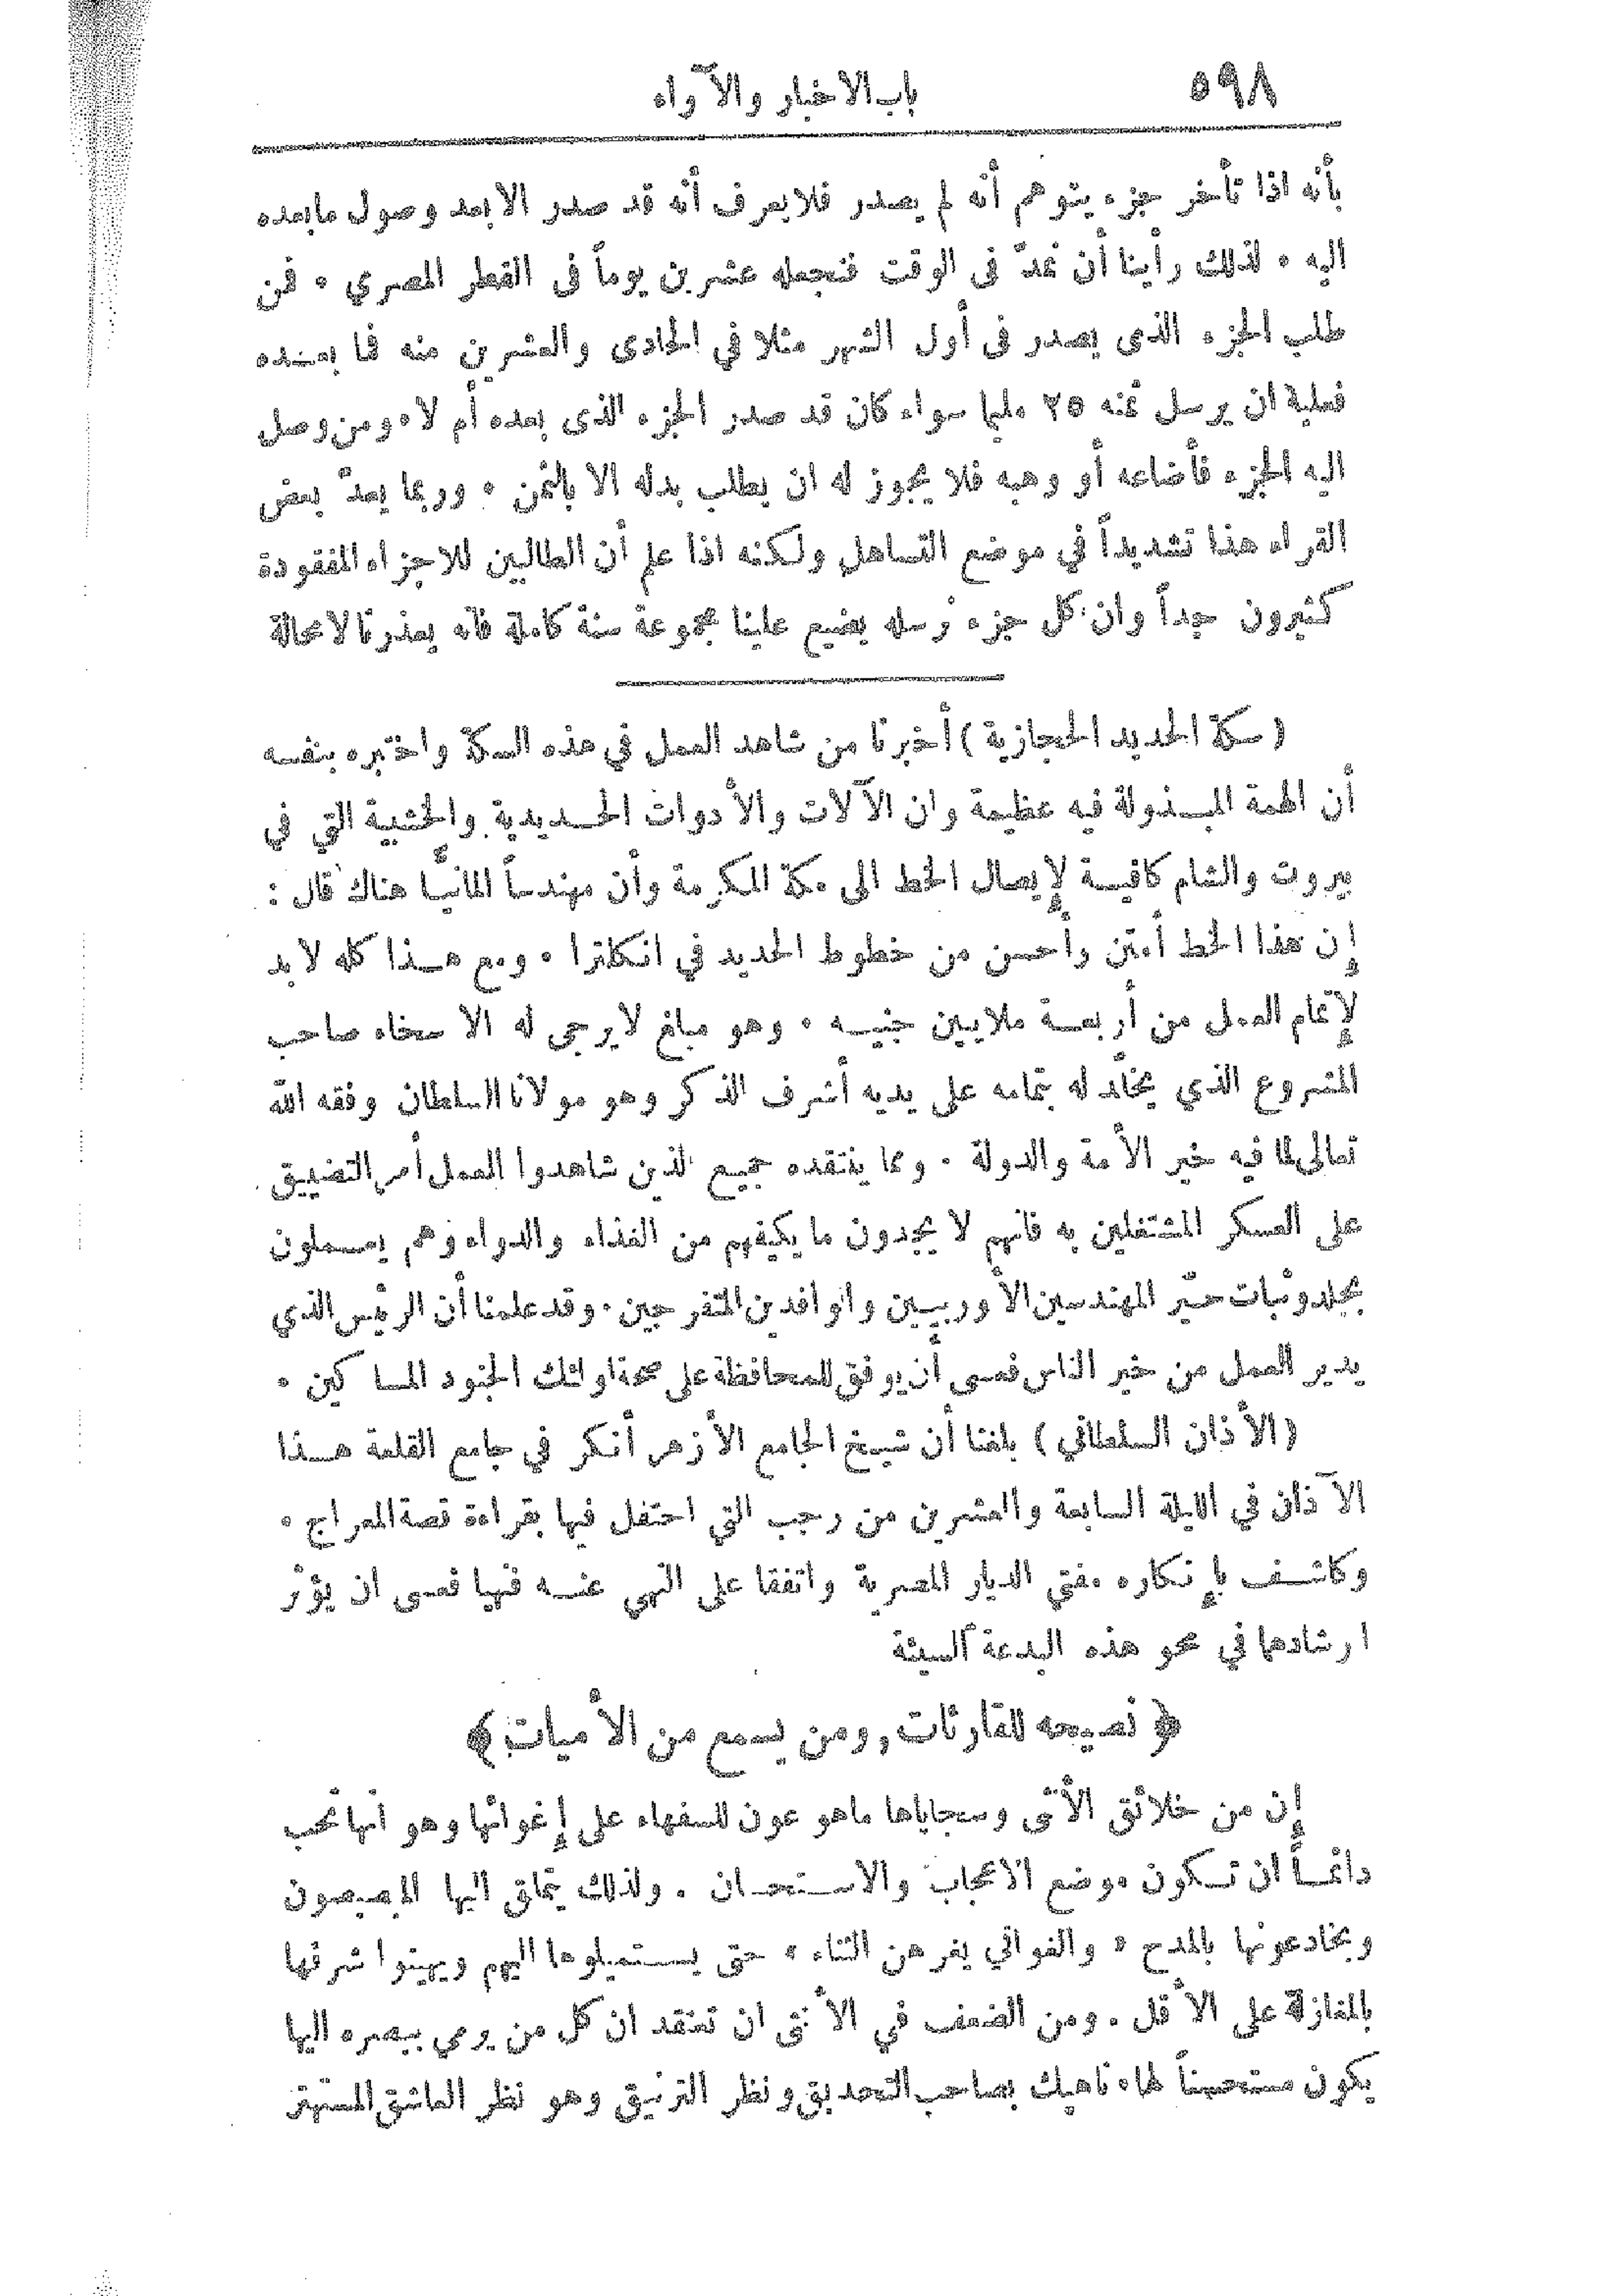 ٥٩٨ باب الاخبار والآراء
بأنه اذا تأخر جزء يتوهم أنه لم يصدر فلا يعرف أنه قد صدر الا بعد وصول ما بعده
اليه ٠ لذلك رأينا أن نمدّ في الوقت فنجعله عشرين يوماً في القطر المصري ٠ فمن
طلب الجزء الذى يصدر فى أول الشهر مثلا في الحادى والعشرين منه فما بعده
فعليه ان يرسل ثمنه ٢٥ مليما سواء كان قد صدر الجزء الذى بعده أم لا ٠ ومن وصل
اليه الجزء فأضاعه أو وهبه فلا يجوز له ان يطلب بدله الا بالثمن ٠ وربما يعدّ بعض
القراء هذا تشديداً في موضع التساهل ولكنه اذا علم أن الطالبين للاجزاء المفقودة
كثيرون جداً وان كل جزء نرسله يضيع علينا مجموعة سنة كاملة فانه يعذرنا لا محالة
(سكة الحديد الحجازية) أخبرنا من شاهد العمل في هذه السكة واختبره بنفسه
أن الهمة المبذولة فيه عظيمة وان الآلات والأدوات الحديدية والخشبية التي في
بيروت والشام كافية لإيصال الخط الى مكة المكرمة وأن مهندساً المانيًّا هناك قال :
إن هذا الخط أمتن وأحسن من خطوط الحديد في انكلترا ٠ ومع هذا كله لا بد
لإتمام العمل من أربعة ملايين جنيه ٠ وهو مبلغ لا يرجى له الا سخاء صاحب
المشروع الذي يخلّد له بتمامه على يديه أشرف الذكر وهو مولانا السلطان وفقه الله
تعالى لما فيه خير الأمة والدولة ٠ ومما ينتقده جميع الذين شاهدوا العمل أمر التضييق
على العسكر المشتغلين به فانهم لا يجدون ما يكفيهم من الغذاء والدواء وهم يعملون
بجلد وثبات حيّر المهندسين الأوربيين والوافدين المتفرجين ٠ وقد علمنا أن الرئيس الذي
يدير العمل من خير الناس فعسى أن يوفق للمحافظة على صحة اولئك الجنود المساكين ٠
(الأذان السلطاني) بلغنا أن شيخ الجامع الأزهر أنكر في جامع القلعة هذا
الآذان في الليلة السابعة والعشرين من رجب التي احتفل فيها بقراءة قصة المعراج ٠
وكاشف بإنكاره مفتي الديار المصرية واتفقا على النهي عنه فيها فعسى ان يؤثر
ارشادهما في محو هذه البدعة السيئة
﴿ نصيحه للقارئات , ومن يسمع من الأميات ﴾
إن من خلائق الأنثى وسجاياها ما هو عون للسفهاء على إغوائها وهو انها تحب
دائماً ان تكون موضع الاعجاب والاستحسان . ولذلك يتملق اليها المبصبصون
ويخادعونها بالمدح « والغواني يغرهن الثناء » حتى يستميلوها اليهم ويهينوا شرفها
بالمغازلة على الأقل . ومن الضعف في الأنثى ان تعتقد ان كل من يرمي ببصره اليها
يكون مستحسناً لها ٠ ناهيك بصاحب التحديق ونظر الترنيق وهو نظر العاشق المستهتر